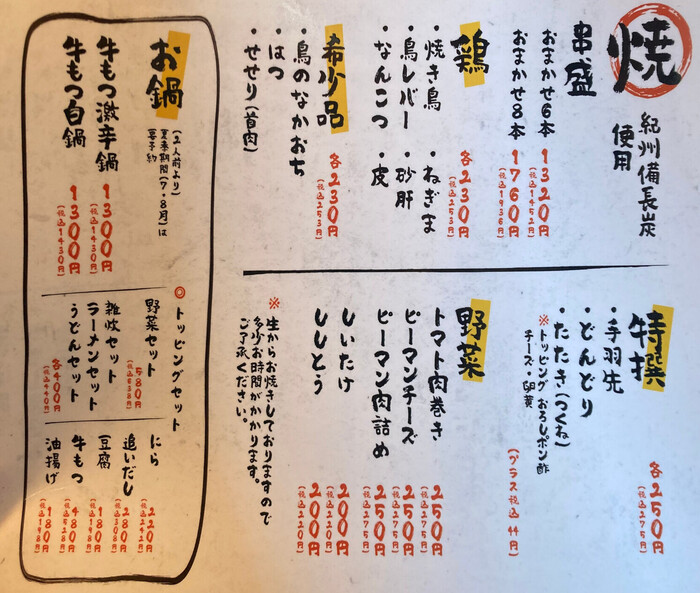 焼
紀州備長炭
使用
串盛
おまかせ6本 1320円
(税込1452円)
おまかせ8本 1760円
(税込1936円)
鶏
・焼き鳥 ・ねぎま
・鳥レバー ・砂肝
・なんこつ ・皮
各230円
(税込253円)
希少品
・鳥のなかおち
・はつ
・せせり(首肉)
各230円
(税込253円)
特撰
・手羽先
・どんどり
・たたき(つくね)
※トッピング おろしポン酢
チーズ・卵黄
各250円
(税込275円)
(プラス税込44円)
野菜
トマト肉巻き 250円
(税込275円)
ピーマンチーズ 250円
(税込275円)
ピーマン肉詰め 250円
(税込275円)
しいたけ 200円
(税込220円)
ししとう 200円
(税込220円)
※生からお焼きしておりますので
多少お時間がかかります。
ご了承ください。
お鍋
(2人前より)
夏季期間(7・8月)は
要予約
牛もつ激辛鍋 1300円
(税込1430円)
牛もつ白鍋 1300円
(税込1430円)
◎トッピングセット
野菜セット 580円
(税込638円)
雑炊セット
ラーメンセット
うどんセット
各400円
(税込440円)
にら 220円
(税込242円)
追いだし 280円
(税込308円)
豆腐 180円
(税込198円)
牛もつ 480円
(税込528円)
油揚げ 180円
(税込198円)